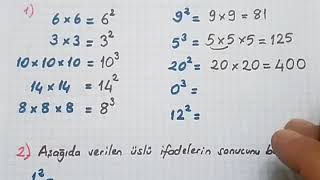 1)
6 × 6 = 6²
3 × 3 = 3²
10 × 10 × 10 = 10³
14 × 14 = 14²
8 × 8 × 8 = 8³
9² = 9 × 9 = 81
5³ = 5 × 5 × 5 = 125
20² = 20 × 20 = 400
0³ =
12² =
2.) Aşağıda verilen üslü ifadelerin sonucunu
1² =